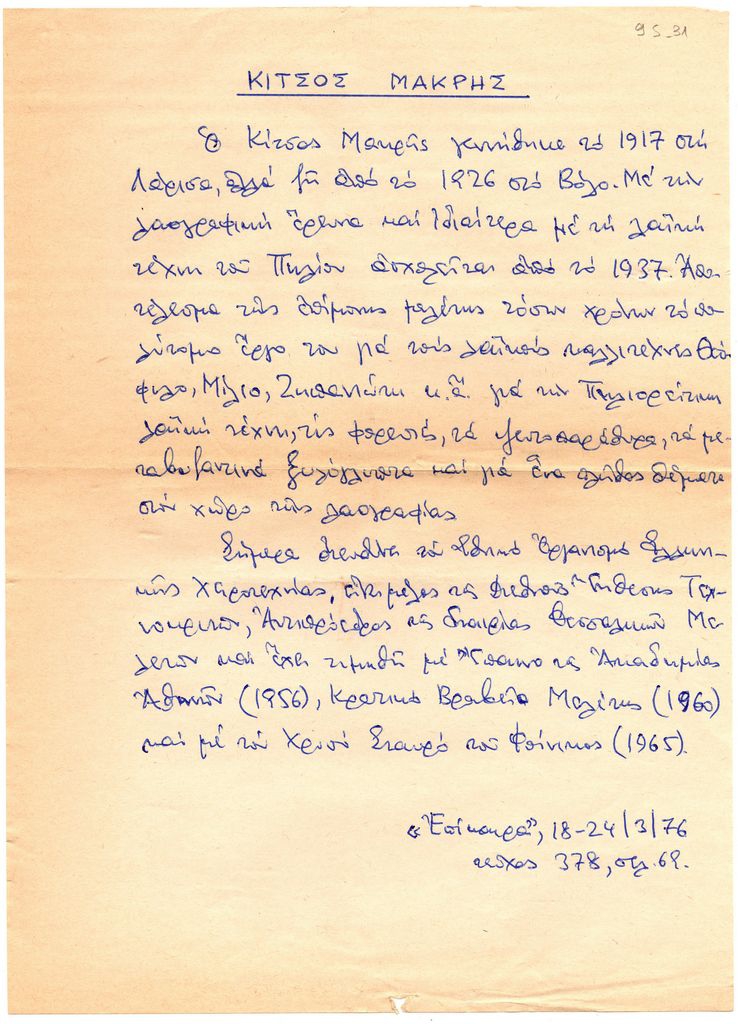 9 S-31
ΚΙΤΣΟΣ ΜΑΚΡΗΣ
Ὁ Κίτσος Μακρῆς γεννήθηκε τό 1917 στή
Λάρισα, ἀλλά ζῆ ἀπό τό 1926 στό Βόλο. Μέ τήν
λαογραφική ἔρευνα καί ἰδιαίτερα μέ τή λαϊκή
τέχνη τοῦ Πηλίου ἀσχολεῖται ἀπό τό 1937. Ἀπο-
τέλεσμα τῆς ἐπίμονης μελέτης τόσων χρόνων τό πο-
λύτομο ἔργο του γιά τούς λαϊκούς καλλιτέχνες Θεό-
φιλο, Μίλιο, Ζηπανιώτη κ.ἄ. γιά τήν Πηλιορείτικη
λαϊκή τέχνη, τίς φορεσιές, τά ψευτοπαράθυρα, τά με-
ταβυζαντινά ξυλόγλυπτα καί γιά ἕνα πλῆθος θέματα
στόν χῶρο τῆς λαογραφίας.
Σήμερα διευθύνει τόν Ἐθνικό Ὀργανισμό Ἑλλην-
ικῆς Χειροτεχνίας, εἶναι μέλος τῆς Διεθνοῦς Ἑνώσεως Τεχ-
νοκριτῶν, Ἀντιπρόεδρος τῆς Ἑταιρίας Θεσσαλικῶν Με-
λετῶν καί ἔχει τιμηθῆ μέ Ἔπαινο τῆς Ἀκαδημίας
Ἀθηνῶν (1956), Κρατικό Βραβεῖο Μελέτης (1960)
καί μέ τόν Χρυσό Σταυρό τοῦ Φοίνικος (1965).
"Ἐπίκαιρα", 18-24/3/76
τεῦχος 378, σελ. 69.